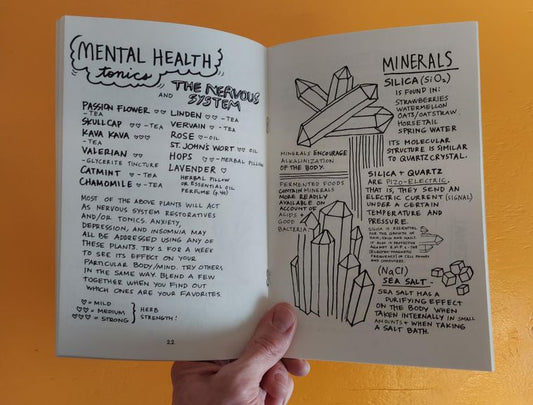 MENTAL HEALTH
tonics
AND THE NERVOUS
SYSTEM
PASSION FLOWER ♡♡
- TEA
SKULLCAP ♡♡ - TEA
KAVA KAVA ♡♡♡
- TEA
VALERIAN ♡♡
- GLYCERITE TINCTURE
CATMINT ♡ - TEA
CHAMOMILE ♡ - TEA
LINDEN ♡♡ - TEA
VERVAIN ♡ - TEA
ROSE ♡ - OIL
ST. JOHN'S WORT ♡♡ OIL
HOPS ♡♡ - HERBAL PILLOW
LAVENDER ♡
HERBAL PILLOW
OR ESSENTIAL OIL
PERFUME
MOST OF THE ABOVE PLANTS WILL ACT
AS NERVOUS SYSTEM RESTORATIVES
AND/OR TONICS. ANXIETY,
DEPRESSION, AND INSOMNIA MAY
ALL BE ADDRESSED USING ANY OF
THESE PLANTS. TRY 1 FOR A WEEK
TO SEE ITS EFFECT ON YOUR
PARTICULAR BODY/MIND. TRY OTHERS
IN THE SAME WAY. BLEND A FEW
TOGETHER WHEN YOU FIND OUT
WHICH ONES ARE YOUR FAVORITES.
♡ = MILD
♡♡ = MEDIUM
♡♡♡ = STRONG
HERB
STRENGTH!
22
MINERALS
SILICA (SiO₂)
IS FOUND IN:
STRAWBERRIES
WATERMELLON
OATS/OATSTRAW
HORSETAIL
SPRING WATER
ITS MOLECULAR
STRUCTURE IS SIMILAR
TO QUARTZ CRYSTAL.
MINERALS ENCOURAGE
ALKALINIZATION
OF THE BODY.
FERMENTED FOODS
CONTAIN MINERALS
MORE READILY
AVAILABLE ON
ACCOUNT OF
ACIDS +
GOOD
BACTERIA
SILICA + QUARTZ
ARE PIZO-ELECTRIC.
THAT IS, THEY SEND AN
ELECTRIC CURRENT (SIGNAL)
UNDER A CERTAIN
TEMPERATURE AND
PRESSURE.
SILICA IS ESSENTIAL
FOR THE GROWTH OF
HAIR, SKIN AND NAILS.
IT ALSO IS PROTECTIVE
AGAINST E.M.F.'S - THE
(ELECTRO-MAGNETIC
FREQUENCIES) OF CELL PHONES
AND COMPUTERS.
(NaCl)
SEA SALT -
SEA SALT HAS A
PURIFYING EFFECT
ON THE BODY WHEN
TAKEN INTERNALLY IN SMALL
AMOUNTS + WHEN TAKING
A SALT BATH.